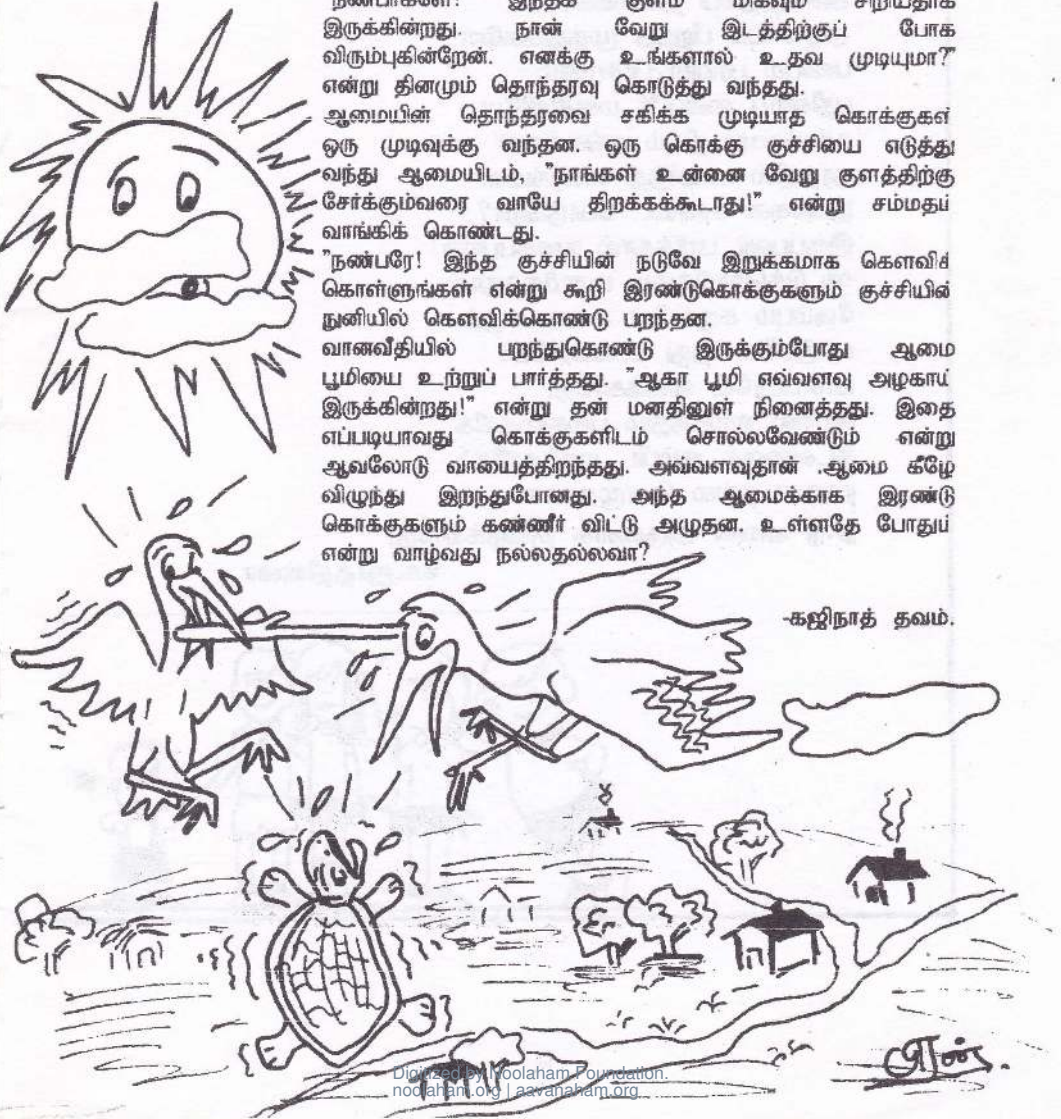 "நண்பர்களே! இந்தக் குளம் மிகவும் சிறியதாக
இருக்கின்றது நான் வேறு இடத்திற்குப் போக
விரும்புகின்றேன். எனக்கு உங்களால் உதவ முடியுமா?"
என்று தினமும் தொந்தரவு கொடுத்து வந்தது.
ஆமையின் தொந்தரவை சகிக்க முடியாத கொக்குகள்
ஒரு முடிவுக்கு வந்தன. ஒரு கொக்கு குச்சியை எடுத்து
வந்து ஆமையிடம், "நாங்கள் உன்னை வேறு குளத்திற்கு
சேர்க்கும்வரை வாயே திறக்கக்கூடாது!" என்று சம்மதம்
வாங்கிக் கொண்டது.
"நண்பரே! இந்த குச்சியின் நடுவே இறுக்கமாக கௌவிக்
கொள்ளுங்கள் என்று கூறி இரண்டுகொக்குகளும் குச்சியின்
நுனியில் கௌவிக்கொண்டு பறந்தன.
வானவீதியில் பறந்துகொண்டு இருக்கும்போது ஆமை
பூமியை உற்றுப் பார்த்தது. "ஆகா பூமி எவ்வளவு அழகாய்
இருக்கின்றது!" என்று தன் மனதினுள் நினைத்தது. இதை
எப்படியாவது கொக்குகளிடம் சொல்லவேண்டும் என்று
ஆவலோடு வாயைத்திறந்தது. அவ்வளவுதான் .ஆமை கீழே
விழுந்து இறந்துபோனது. அந்த ஆமைக்காக இரண்டு
கொக்குகளும் கண்ணீர் விட்டு அழுதன. உள்ளதே போதும்
என்று வாழ்வது நல்லதல்லவா?
-கஜிநாத் தவம்.
Digitized by Noolaham Foundation.
noolaham.org | aavanaham.org